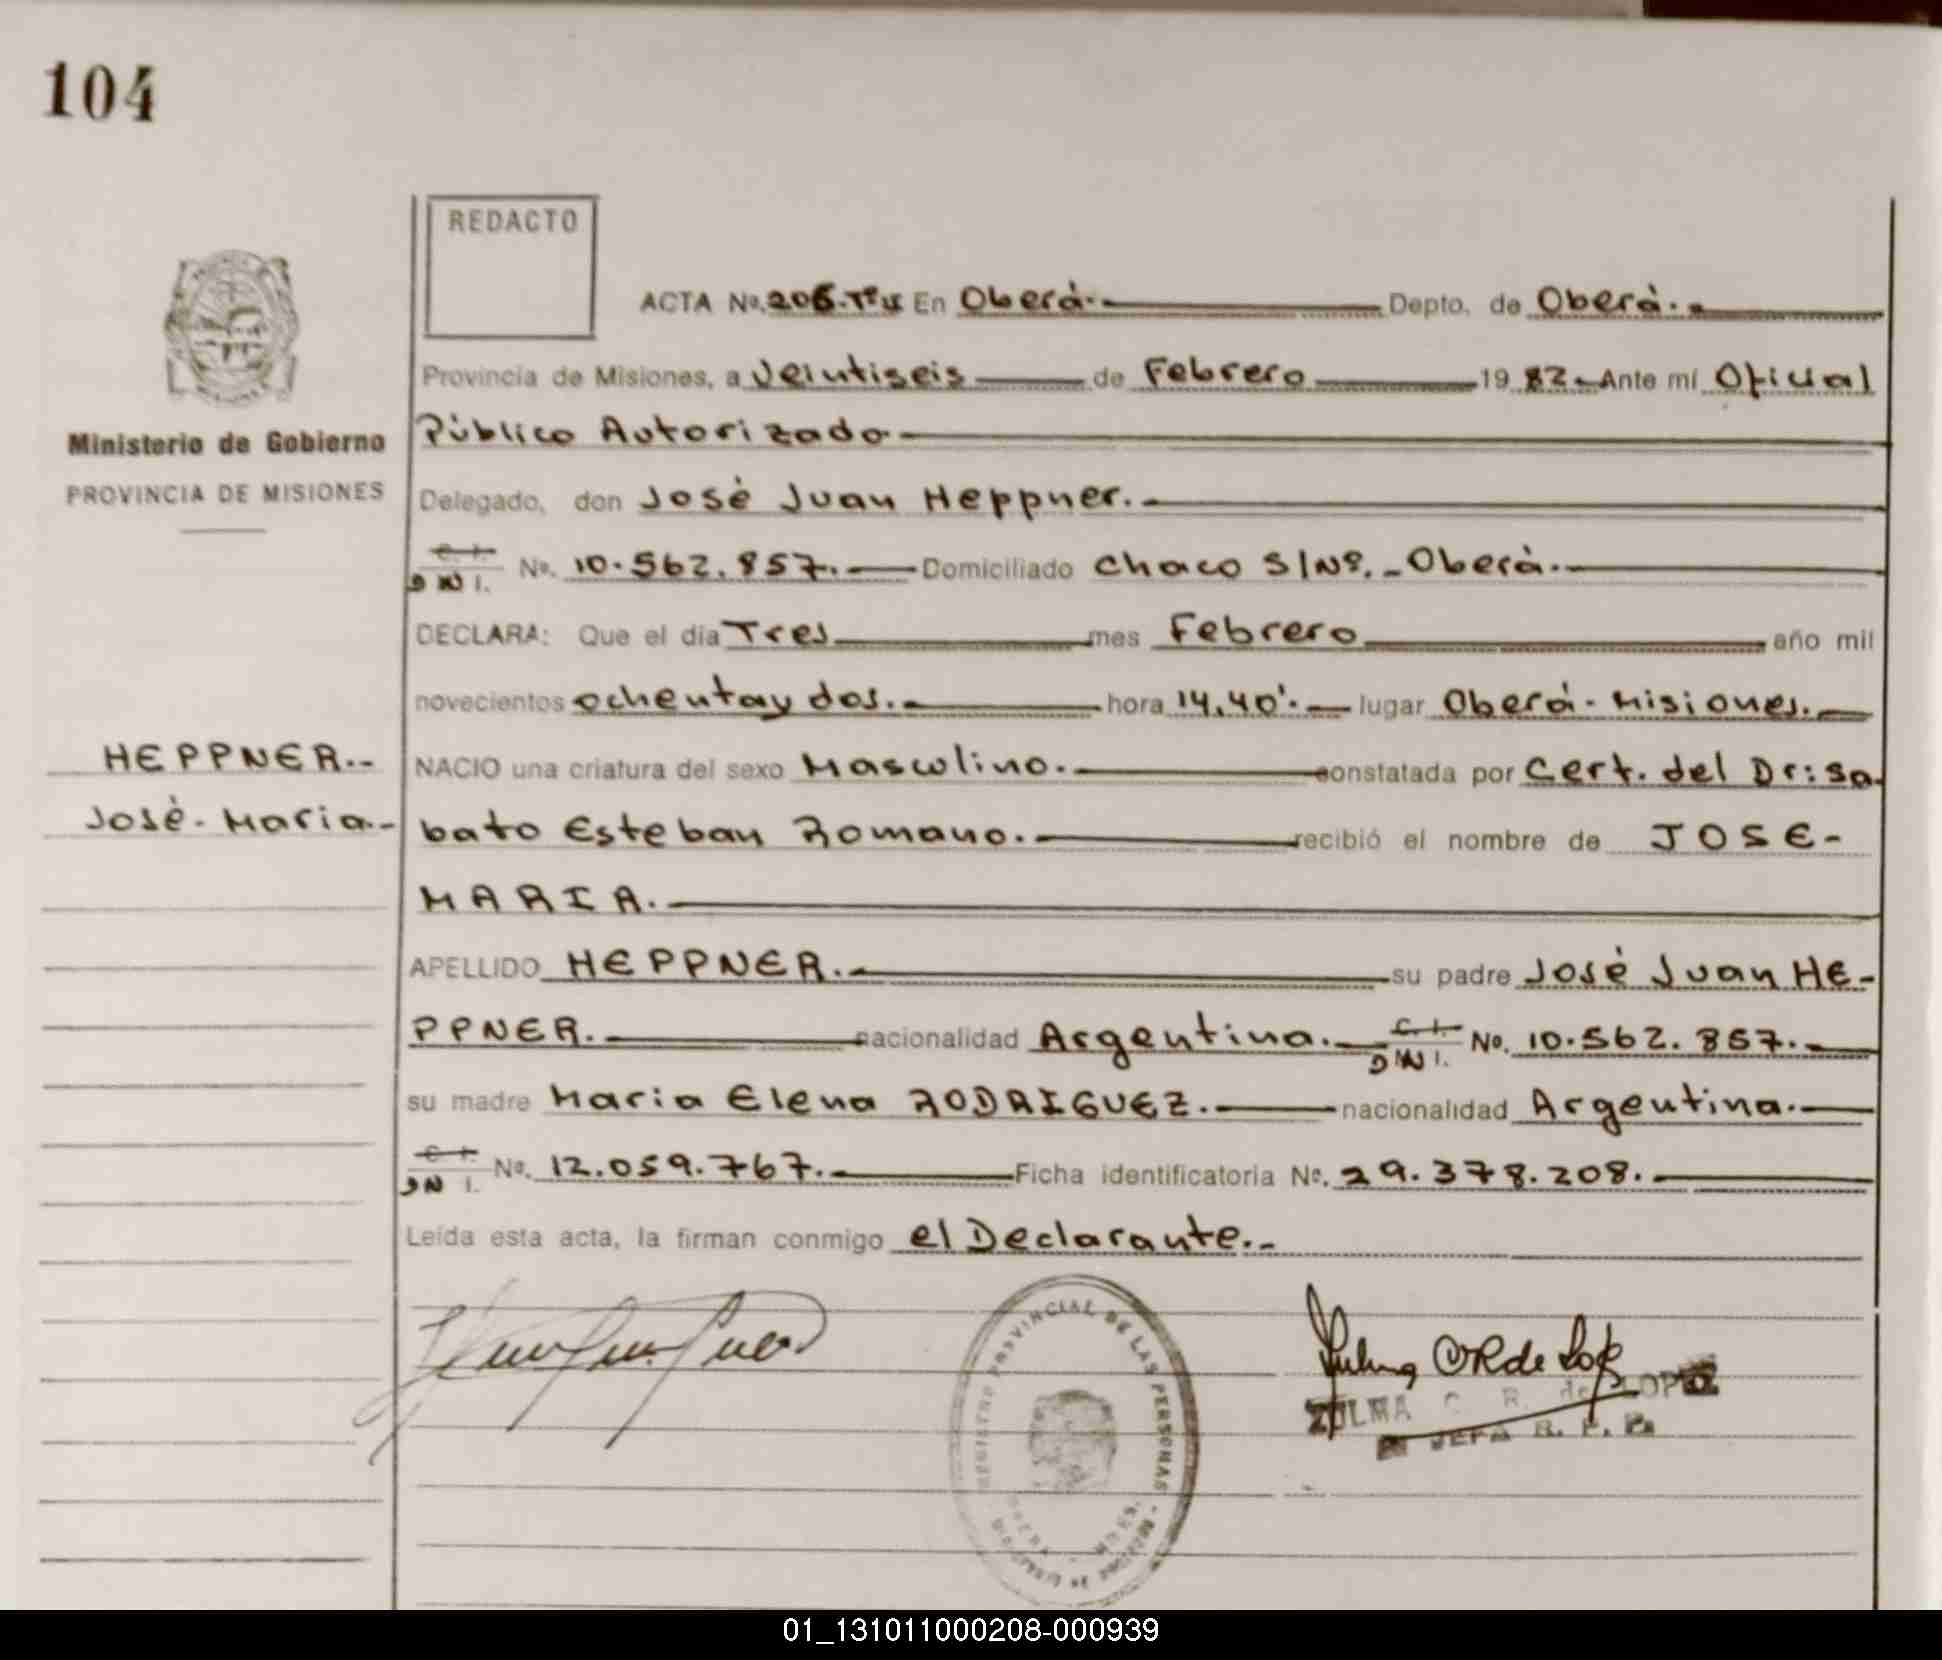 104
REDACTO
ACTA No. 206.Tº IJ En Oberá.- Depto. de Oberá.-
Provincia de Misiones, a Veintiseis de Febrero 1982.- Ante mí Oficial
Público Autorizado
Ministerio de Gobierno
PROVINCIA DE MISIONES
Delegado, don José Juan Heppner.-
C. I.
D N I. No. 10.562.857.- Domiciliado Chaco S/Nº.- Oberá.-
DECLARA: Que el día Tres mes Febrero año mil
novecientos ochenta y dos.- hora 14,40'.- lugar Oberá - Misiones.-
HEPPNER.-
José - Maria.-
NACIO una criatura del sexo Masculino.- constatada por Cert. del Dr: Sa-
bato Esteban Romano.- recibió el nombre de JOSE-
MARIA.-
APELLIDO HEPPNER.- su padre José Juan HE-
PPNER.- nacionalidad Argentina.- C. I.
D N I. No. 10.562.857.-
su madre Maria Elena RODRIGUEZ.- nacionalidad Argentina.-
C. I.
D N I. No. 12.059.767.- Ficha identificatoria No. 29.378.208.-
Leída esta acta, la firman conmigo el Declarante.-
REGISTRO PROVINCIAL DE LAS PERSONAS
ZULMA C. R. de LOPEZ
JEFA R. P. P.
01_131011000208-000939